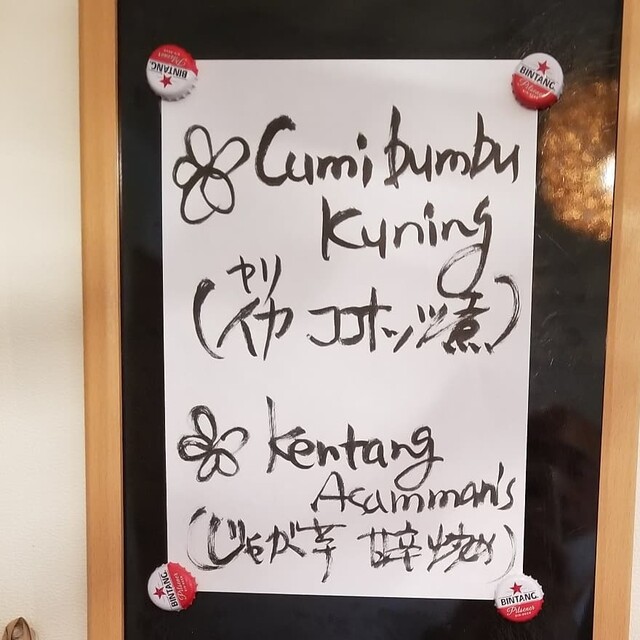 Cumi bumbu
Kuning
ヤリ
(イカ ココナッツ煮)
Kentang
Asam manis
(じゃが芋 甘辛炒め)
BINTANG
Pilsener
BINTANG
Pilsener
BINTANG
Pilsener
BINTANG
Pilsener